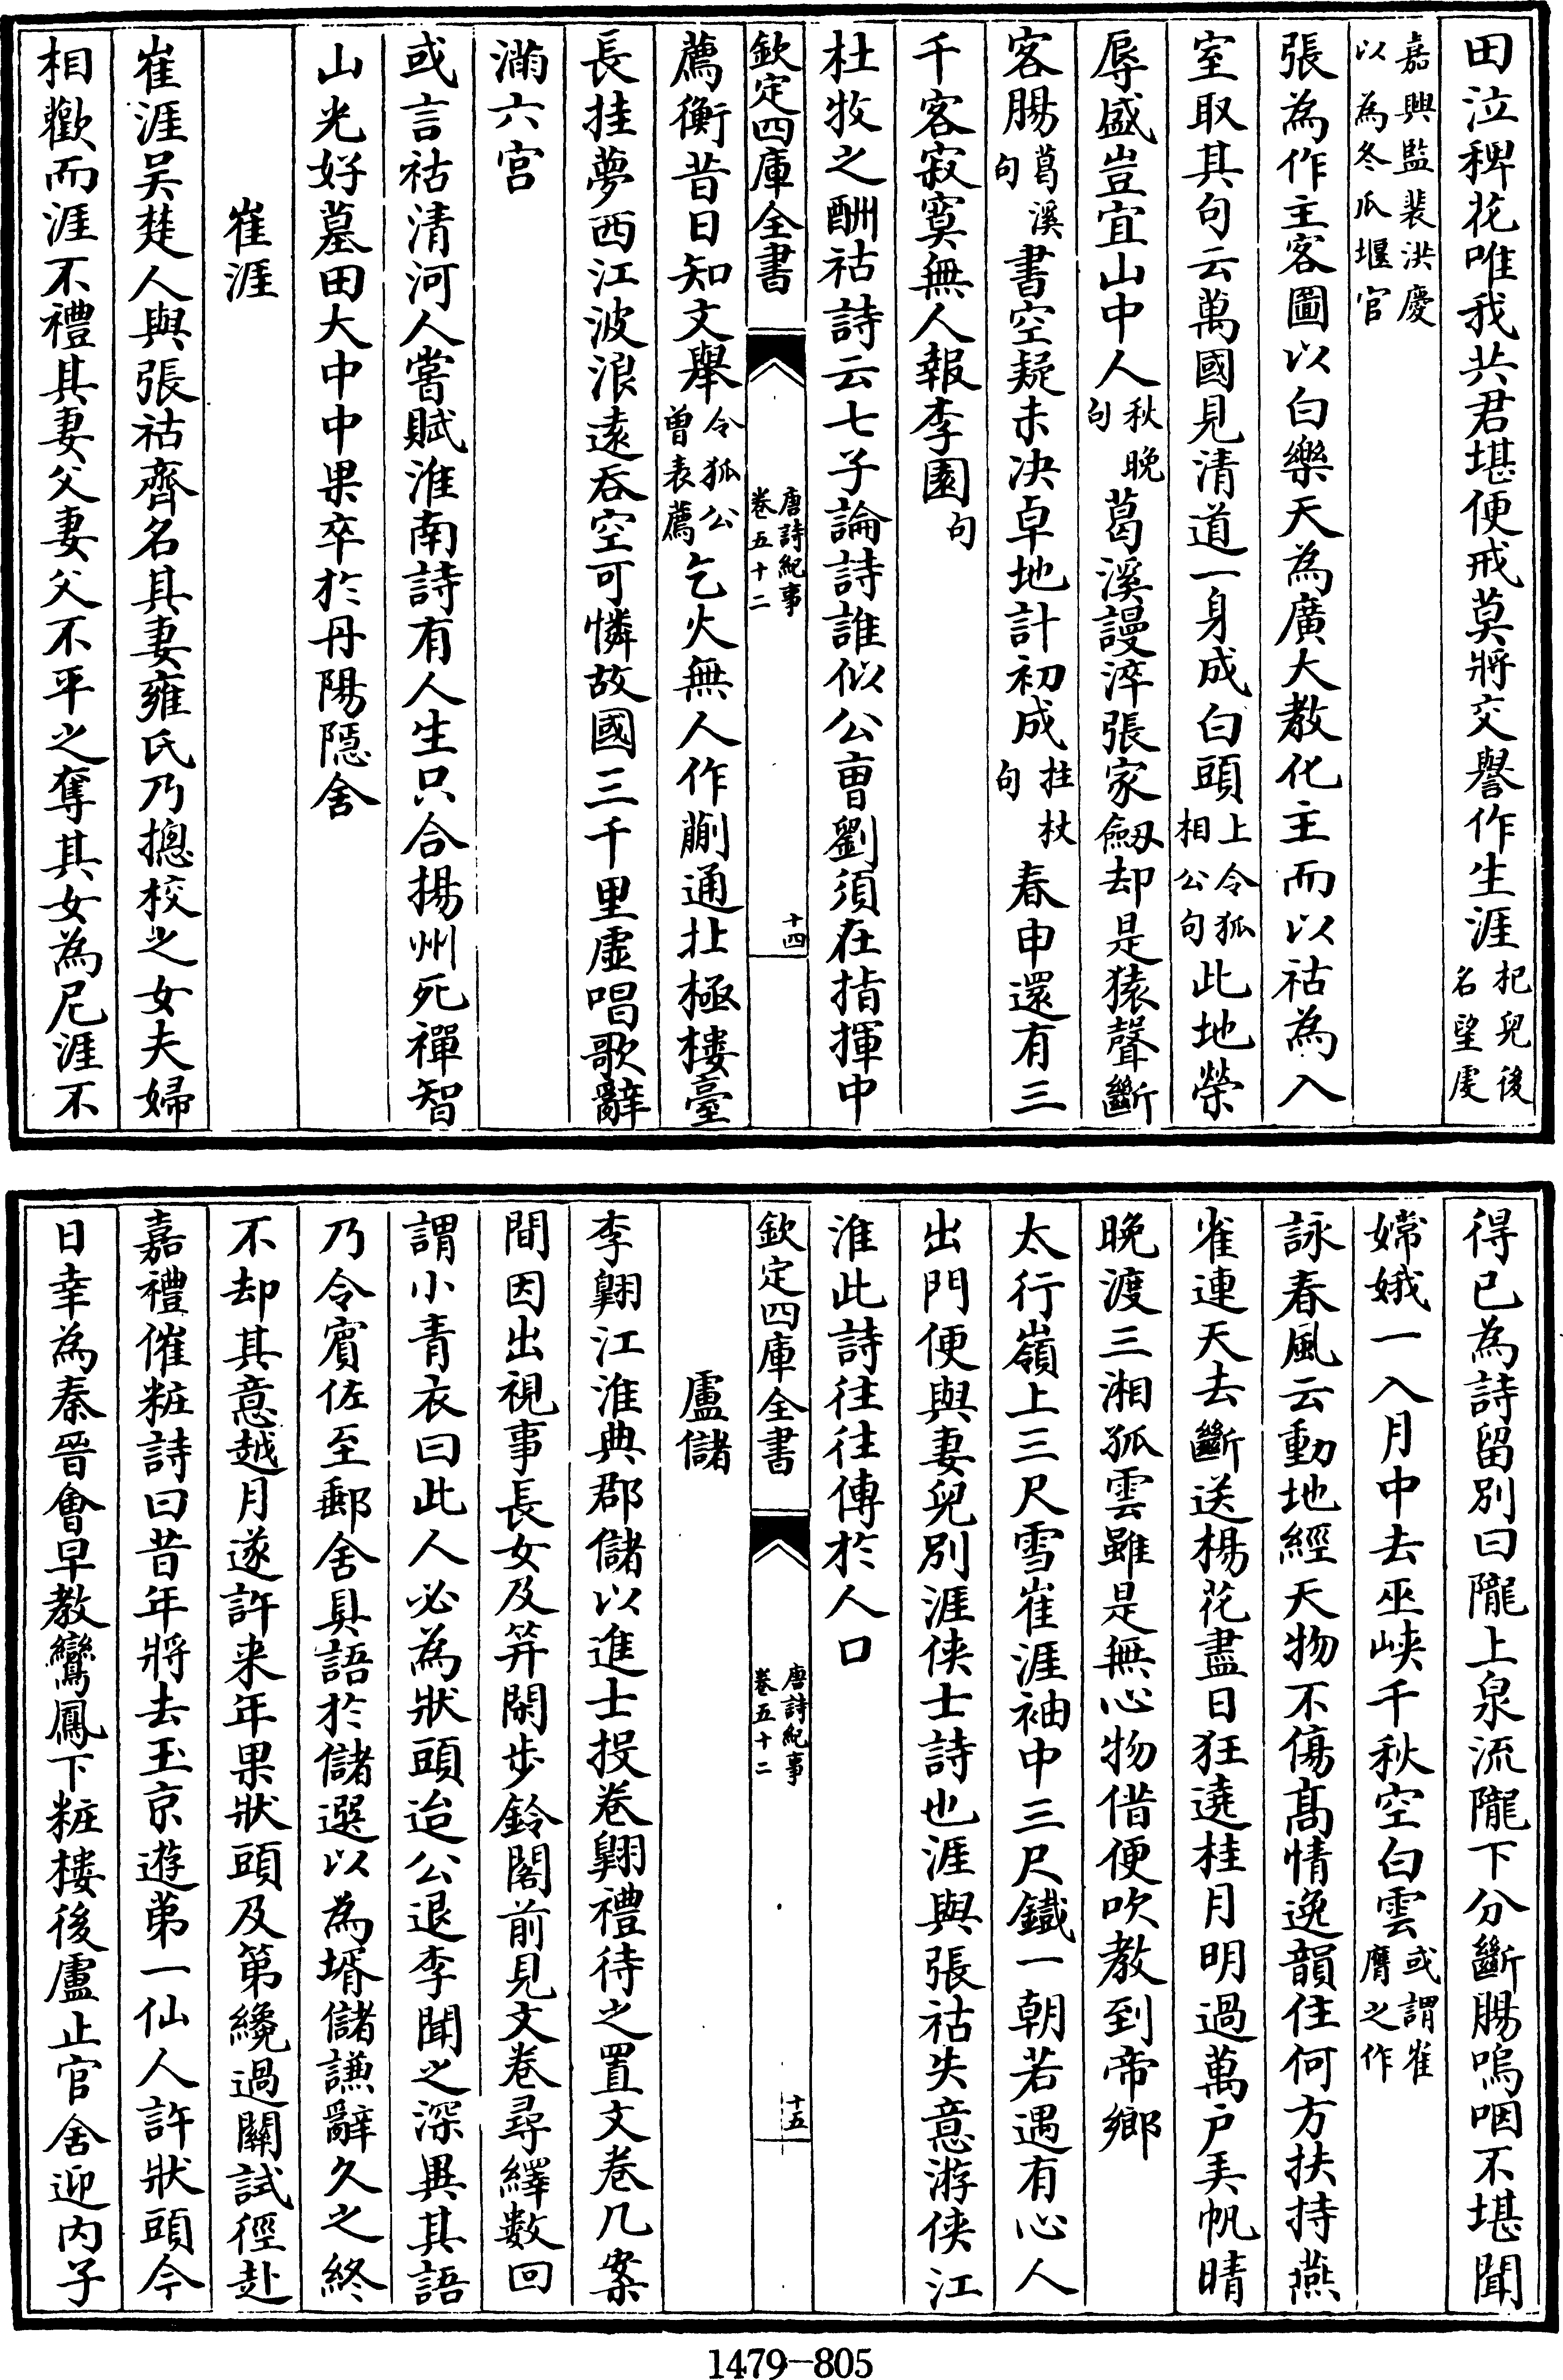 田泣稗花唯我共君堪便戒莫將交譽作生涯杞兒後名望虔
嘉興監裴洪慶以為冬瓜堰官
張為作主客圖以白樂天為廣大教化主而以祜為入
室取其句云萬國見清道一身成白頭上令狐相公句此地榮
辱盛豈宜山中人秋晚句葛溪謾淬張家劒却是猿聲斷
客腸葛溪句書空疑未決卓地計初成拄杖句春申還有三
千客寂寞無人報李園句
杜牧之酬祜詩云七子論詩誰似公曹劉須在指揮中
欽定四庫全書
唐詩紀事
卷五十二
十四
薦衡昔日知文舉令狐公曾表薦乞火無人作蒯通北極樓臺
長挂夢西江波浪遠吞空可憐故國三千里虛唱歌辭
滿六宮
或言祜清河人嘗賦淮南詩有人生只合揚州死禪智
山光好墓田大中中果卒於丹陽隱舍
崔涯
崔涯吳楚人與張祜齊名其妻雍氏乃摠校之女夫婦
相歡而涯不禮其妻父妻父不平之奪其女為尼涯不
得已為詩留別曰隴上泉流隴下分斷腸嗚咽不堪聞
嫦娥一入月中去巫峽千秋空白雲或謂崔膺之作
詠春風云動地經天物不傷高情逸韻住何方扶持燕
雀連天去斷送楊花盡日狂遶桂月明過萬户弄帆晴
晚渡三湘孤雲雖是無心物借便吹教到帝鄉
太行嶺上三尺雪崔涯袖中三尺鐵一朝若遇有心人
出門便與妻兒別涯俠士詩也涯與張祜失意游俠江
淮此詩往往傳於人口
欽定四庫全書
唐詩紀事
卷五十二
十五
盧儲
李翺江淮典郡儲以進士投卷翺禮待之置文卷几案
間因出視事長女及笄閑步鈴閣前見文卷尋繹數回
謂小青衣曰此人必為狀頭迨公退李聞之深異其語
乃令賓佐至郵舍具語於儲選以為壻儲謙辭久之終
不却其意越月遂許来年果狀頭及第纔過關試徑赴
嘉禮催粧詩曰昔年將去玉京遊第一仙人許狀頭今
日幸為秦晉會早教鸞鳳下粧樓後盧止官舍迎内子
1479-805